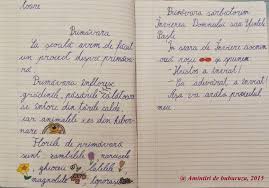 Primăvara
La școală avem de făcut
un proiect despre primăva-
ră.
Primăvara înfloresc
grădinile, păsările călătoare
se întorc din țările calde,
iar animalele ies din hiber-
nare.
Florile de primăvară
sunt zambilele narcisele
ghiocei lalelele
magnoliile toporașii
Primăvara sărbătorim
Învierea Domnului sau Sfintele
Paști.
În seara de Înviere ciocnim
ouă roșii și spunem
Hristos a înviat!
Adevărat a înviat!
Așa va arăta proiectul
meu.
© Amintiri de buburuza, 2015